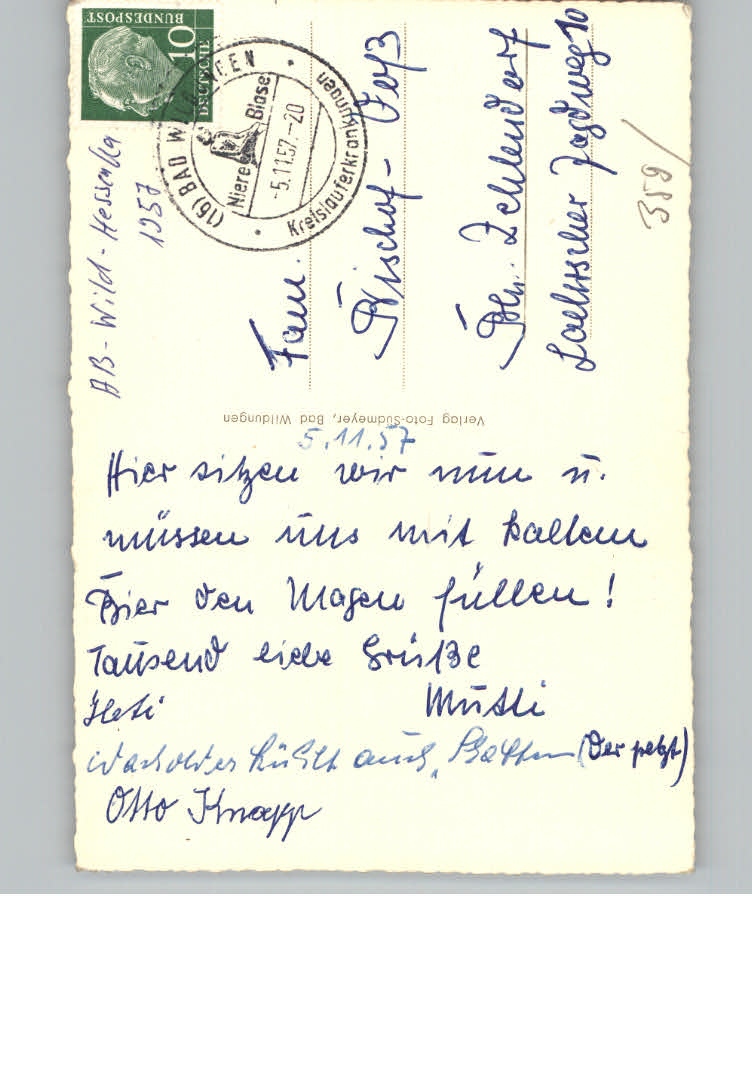 DEUTSCHE
BUNDESPOST
10
(16) BAD WILDUNGEN
Niere Blase
-5.11.57.-20
Kreislauferkrankungen
AB-Wild-Hessen
1957
Fam.
Bischof-Voß
Bln. Zehlendorf
Jagdweg 10
359/
Verlag Foto-Südmeyer, Bad Wildungen
5.11.57
Hier sitzen wir nun u.
müssen uns mit kaltem
Bier den Magen füllen!
Tausend liebe Grüße
Mutti
Wacholder kühlt auch,
(Der petzt)
Otto Knapp